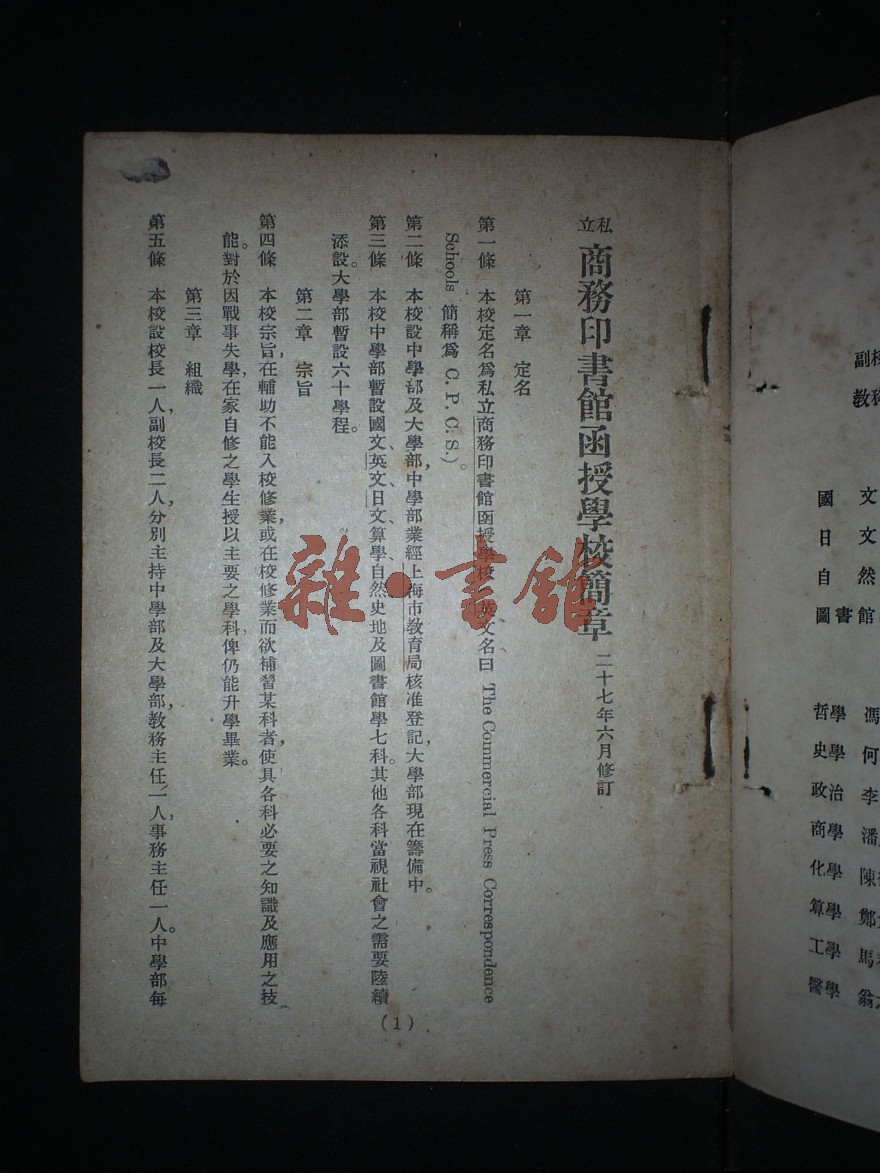 私立 商務印書館函授學校簡章 二十七年六月修訂
第一章 定名
第一條 本校定名爲私立商務印書館函授學校、英文名曰 The Commercial Press Correspondence
Schools 簡稱爲 C. P. C. S.)。
第二條 本校設中學部及大學部,中學部業經上海市教育局核准登記,大學部現在籌備中。
第三條 本校中學部暫設國文、英文、日文、算學、自然、史地及圖書館學七科。其他各科當視社會之需要陸續
添設。大學部暫設六十學程。
第二章 宗旨
第四條 本校宗旨,在輔助不能入校修業,或在校修業而欲補習某科者,使具各科必要之知識及應用之技
能。對於因戰事失學,在家自修之學生授以主要之學科俾仍能升學畢業。
第三章 組織
第五條 本校設校長一人,副校長二人,分別主持中學部及大學部,教務主任一人,事務主任一人。中學部每
(1)
雜·書館
副校
教務
國文
日文
自然
圖書館
哲學 馮
史學 何
政治 李
商學 潘
化學 陳
算學 鄭
工學 馬
醫學 翁